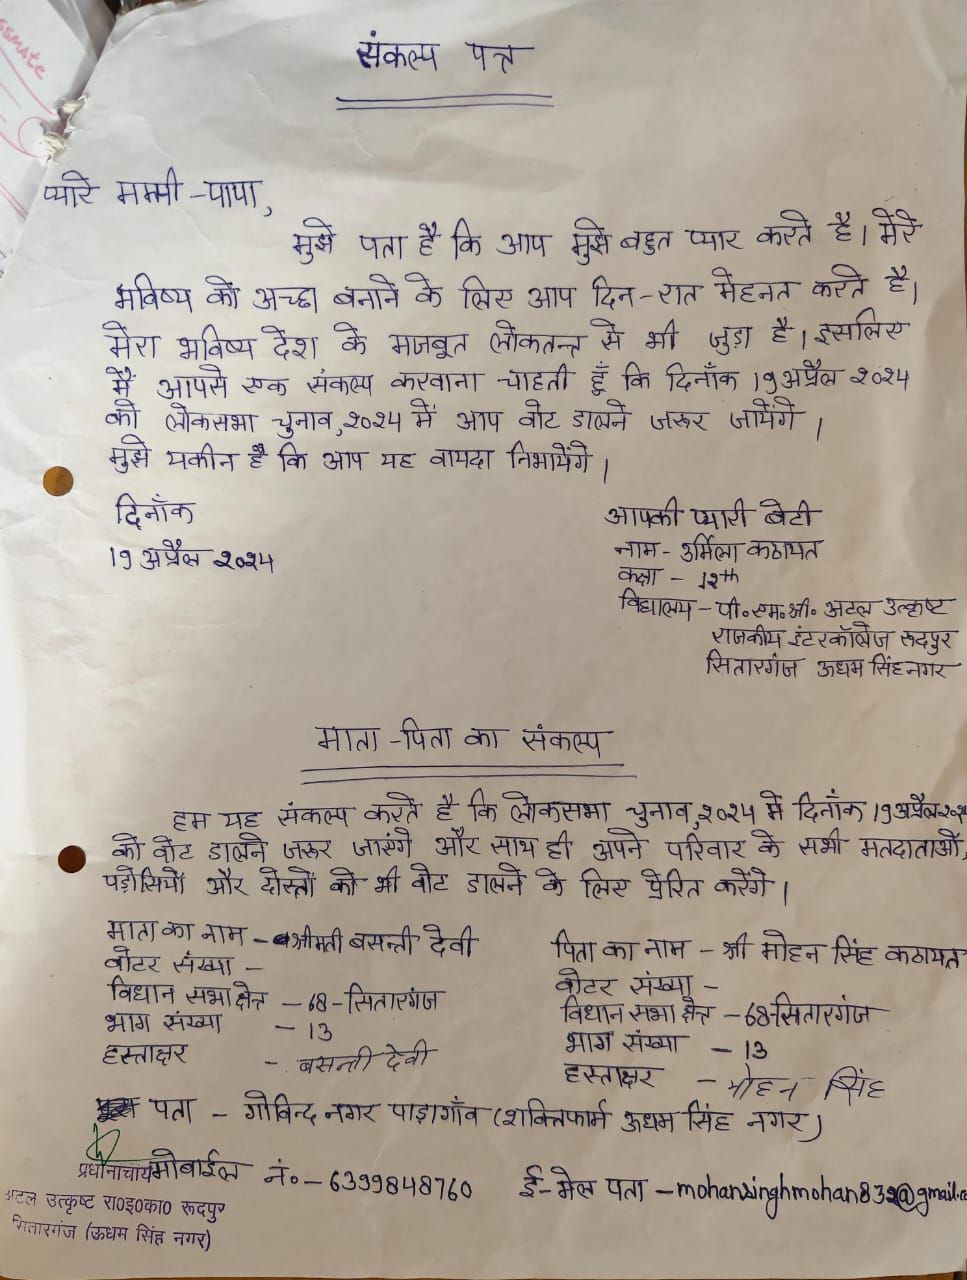 ssmate
संकल्प पत्र
प्यारे मम्मी-पापा,
मुझे पता है कि आप मुझे बहुत प्यार करते है। मेरे
भविष्य को अच्छा बनाने के लिए आप दिन-रात मेहनत करते है।
मेरा भविष्य देश के मजबूत लोकतन्त्र से भी जुड़ा है। इसलिए
मैं आपसे एक संकल्प करवाना चाहती हूँ कि दिनाँक 19 अप्रैल २०२४
को लोकसभा चुनाव, २०२४ में आप वोट डालने जरूर जायेंगे।
मुझे यकीन है कि आप यह वायदा निभायेंगे।
दिनाँक
19 अप्रैल २०२४
आपकी प्यारी बेटी
नाम- उर्मिला कठायत
कक्षा - 12th
विद्यालय - पी०एम०श्री० अटल उत्कृष्ट
राजकीय इंटरकॉलेज रूदपुर
सितारगंज ऊधम सिंह नगर
माता-पिता का संकल्प
हम यह संकल्प करते है कि लोकसभा चुनाव, २०२४ में दिनाँक 19 अप्रैल २०२४
को वोट डालने जरूर जाएंगे और साथ ही अपने परिवार के सभी मतदाताओं,
पड़ोसियों और दोस्तों को भी वोट डालने के लिए प्रेरित करेंगे।
माता का नाम - श्रीमती बसन्ती देवी
वोटर संख्या -
विधान सभा क्षेत्र - 68-सितारगंज
भाग संख्या - 13
हस्ताक्षर - बसन्ती देवी
पिता का नाम - श्री मोहन सिंह कठायत
वोटर संख्या -
विधान सभा क्षेत्र - 68-सितारगंज
भाग संख्या - 13
हस्ताक्षर - मोहन सिंह
पता - गोविन्द नगर पाड़ागाँव (शक्तिफार्म ऊधम सिंह नगर)
मोबाईल नं० - 6399848760 ई-मेल पता - mohansinghmohan832@gmail.c
प्रधानाचार्य
अटल उत्कृष्ट रा०इ०का० रूदपुर
सितारगंज (ऊधम सिंह नगर)